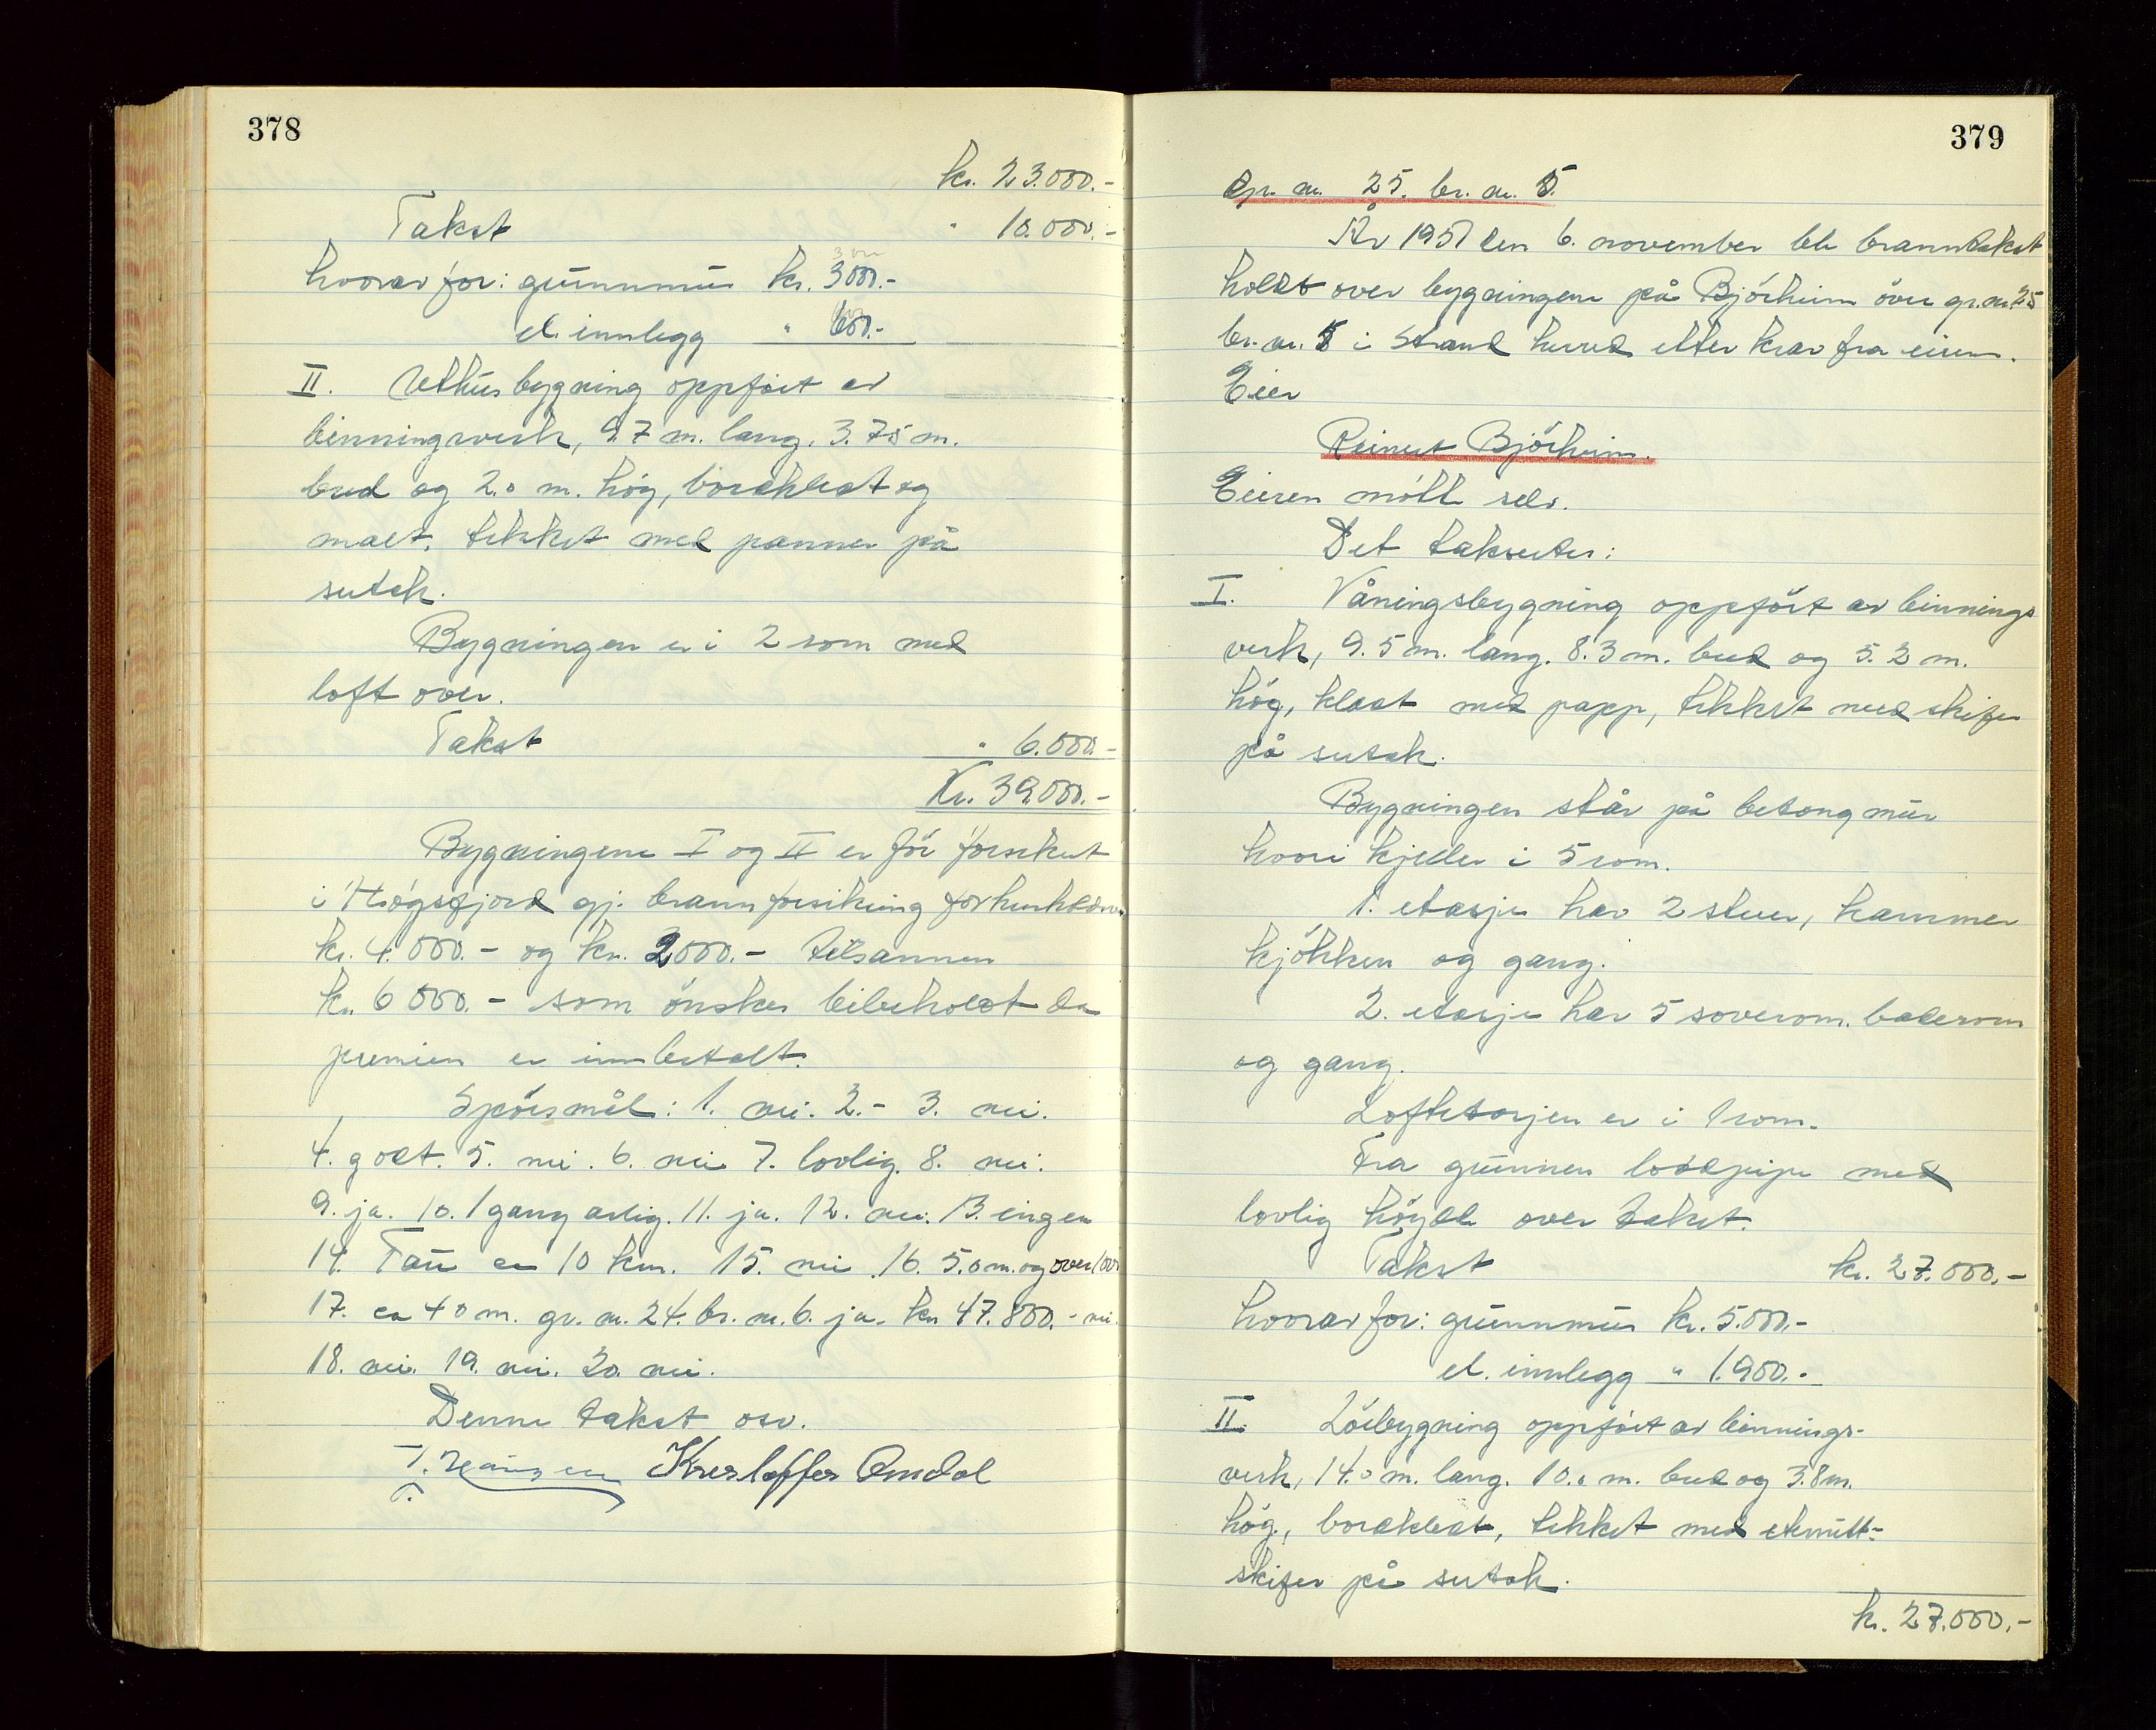 378
kr. 23.000.-
Takst " 10.000.-
hvorav for: grunnmur kr. 3000.-
el. innlegg " 600.-
II. Uthusbygning oppført av
binningsverk, 9.7 m. lang, 3.75 m.
bred og 2.0 m. høg, bordkledt og
malt, tekket med panner på
sutak.
Bygningen er i 2 rom med
loft over.
Takst " 6.000.-
Kr. 39.000.-
Bygningene I og II er før forsikret
i Høgsfjord gj. brannforsikring forhenholdsv.
kr. 4.000.- og kr. 2000.- tilsammen
kr. 6000.- som ønskes bibeholdt da
premien er innbetalt.
Spørsmål: 1. nei. 2.- 3. nei.
4. godt. 5. nei. 6. nei 7. lovlig. 8. nei.
9. ja. 10. 1 gang årlig. 11. ja. 12. nei. 13. ingen
14. Tau ca 10 km. 15. nei. 16. 5.0 m. og over
17. ca 40 m. gr. nr. 24. br. nr. 6. ja. kr 47.800.- nei.
18. nei. 19. nei. 20. nei.
Denne takst osv.
Kristoffer Omdal
379
Gr. nr. 25. br. nr. 5.
År 1951 den 6. november ble branntakst
holdt over bygningene på Bjørheim øvre gr. nr. 25
br. nr. 5 i Strand herred etter krav fra eieren.
Eier
Reinert Bjørheim.
Eieren møtte selv.
Det takseres:
I. Våningsbygning oppført av binnings
verk, 9.5 m. lang. 8.3 m. bred og 5.2 m.
høg, kledt med papp, tekket med skifer
på sutak.
Bygningen står på betongmur
hvori kjeller i 5 rom.
1. etasje har 2 stuer, kammer
kjøkken og gang.
2. etasje har 5 soverom. baderom
og gang.
Loftetasjen er i 1 rom.
Fra grunnen loddpipe med
lovlig høyde over taket.
Takst kr. 27.000.-
hvorav for: grunnmur kr. 5.000.-
el. innlegg " 1.900.-
II. Løebygning oppført av binnings-
verk, 14.0 m. lang. 10.0 m. bred og 3.8 m.
høg, bordkledt, tekket med eternitt-
skifer på sutak.
kr. 27.000.-